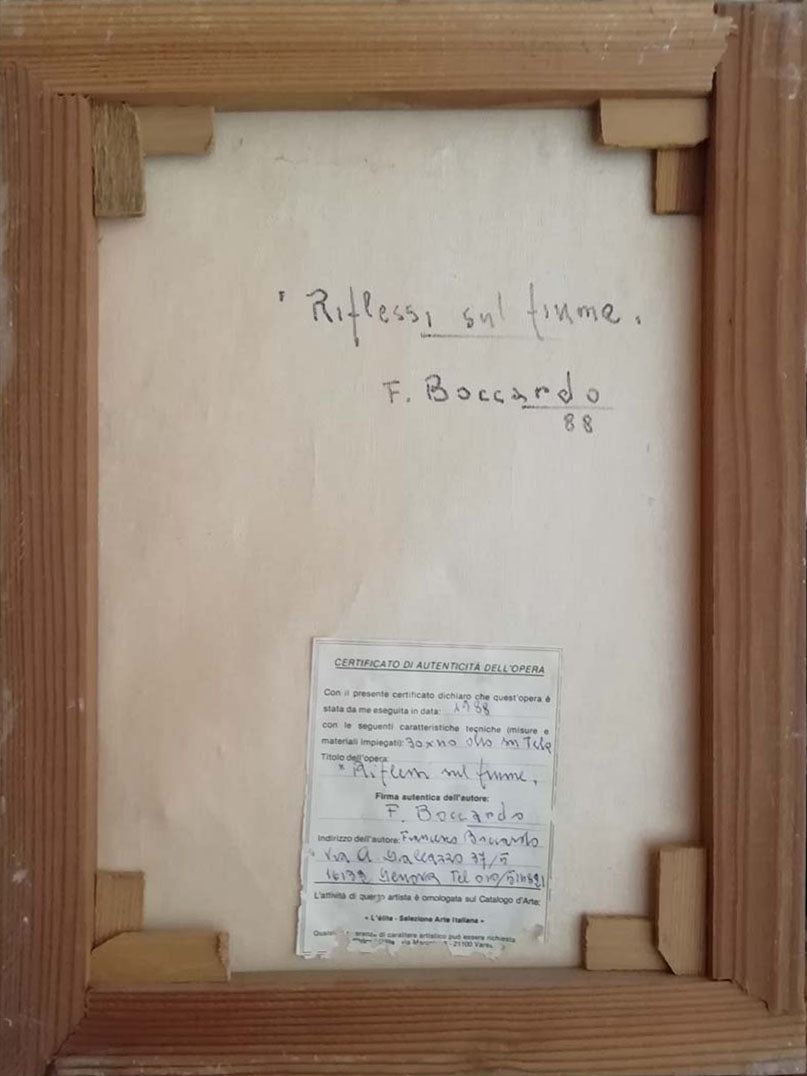 " Riflessi sul fiume.
F. Boccardo
88
CERTIFICATO DI AUTENTICITÀ DELL'OPERA
Con il presente certificato dichiaro che quest'opera è
stata da me eseguita in data: 1988
con le seguenti caratteristiche tecniche (misure e
materiali impiegati): olio su Tela
Titolo dell'opera:
" Riflessi sul fiume.
Firma autentica dell'autore:
F. Boccardo
Indirizzo dell'autore: Francesco Boccardo
Via 37/5
Genova Tel
L'attività di questo artista è omologata sul Catalogo d'Arte:
« L'élite - Selezione Arte Italiana »
di carattere artistico può essere richiesta
via - 21100